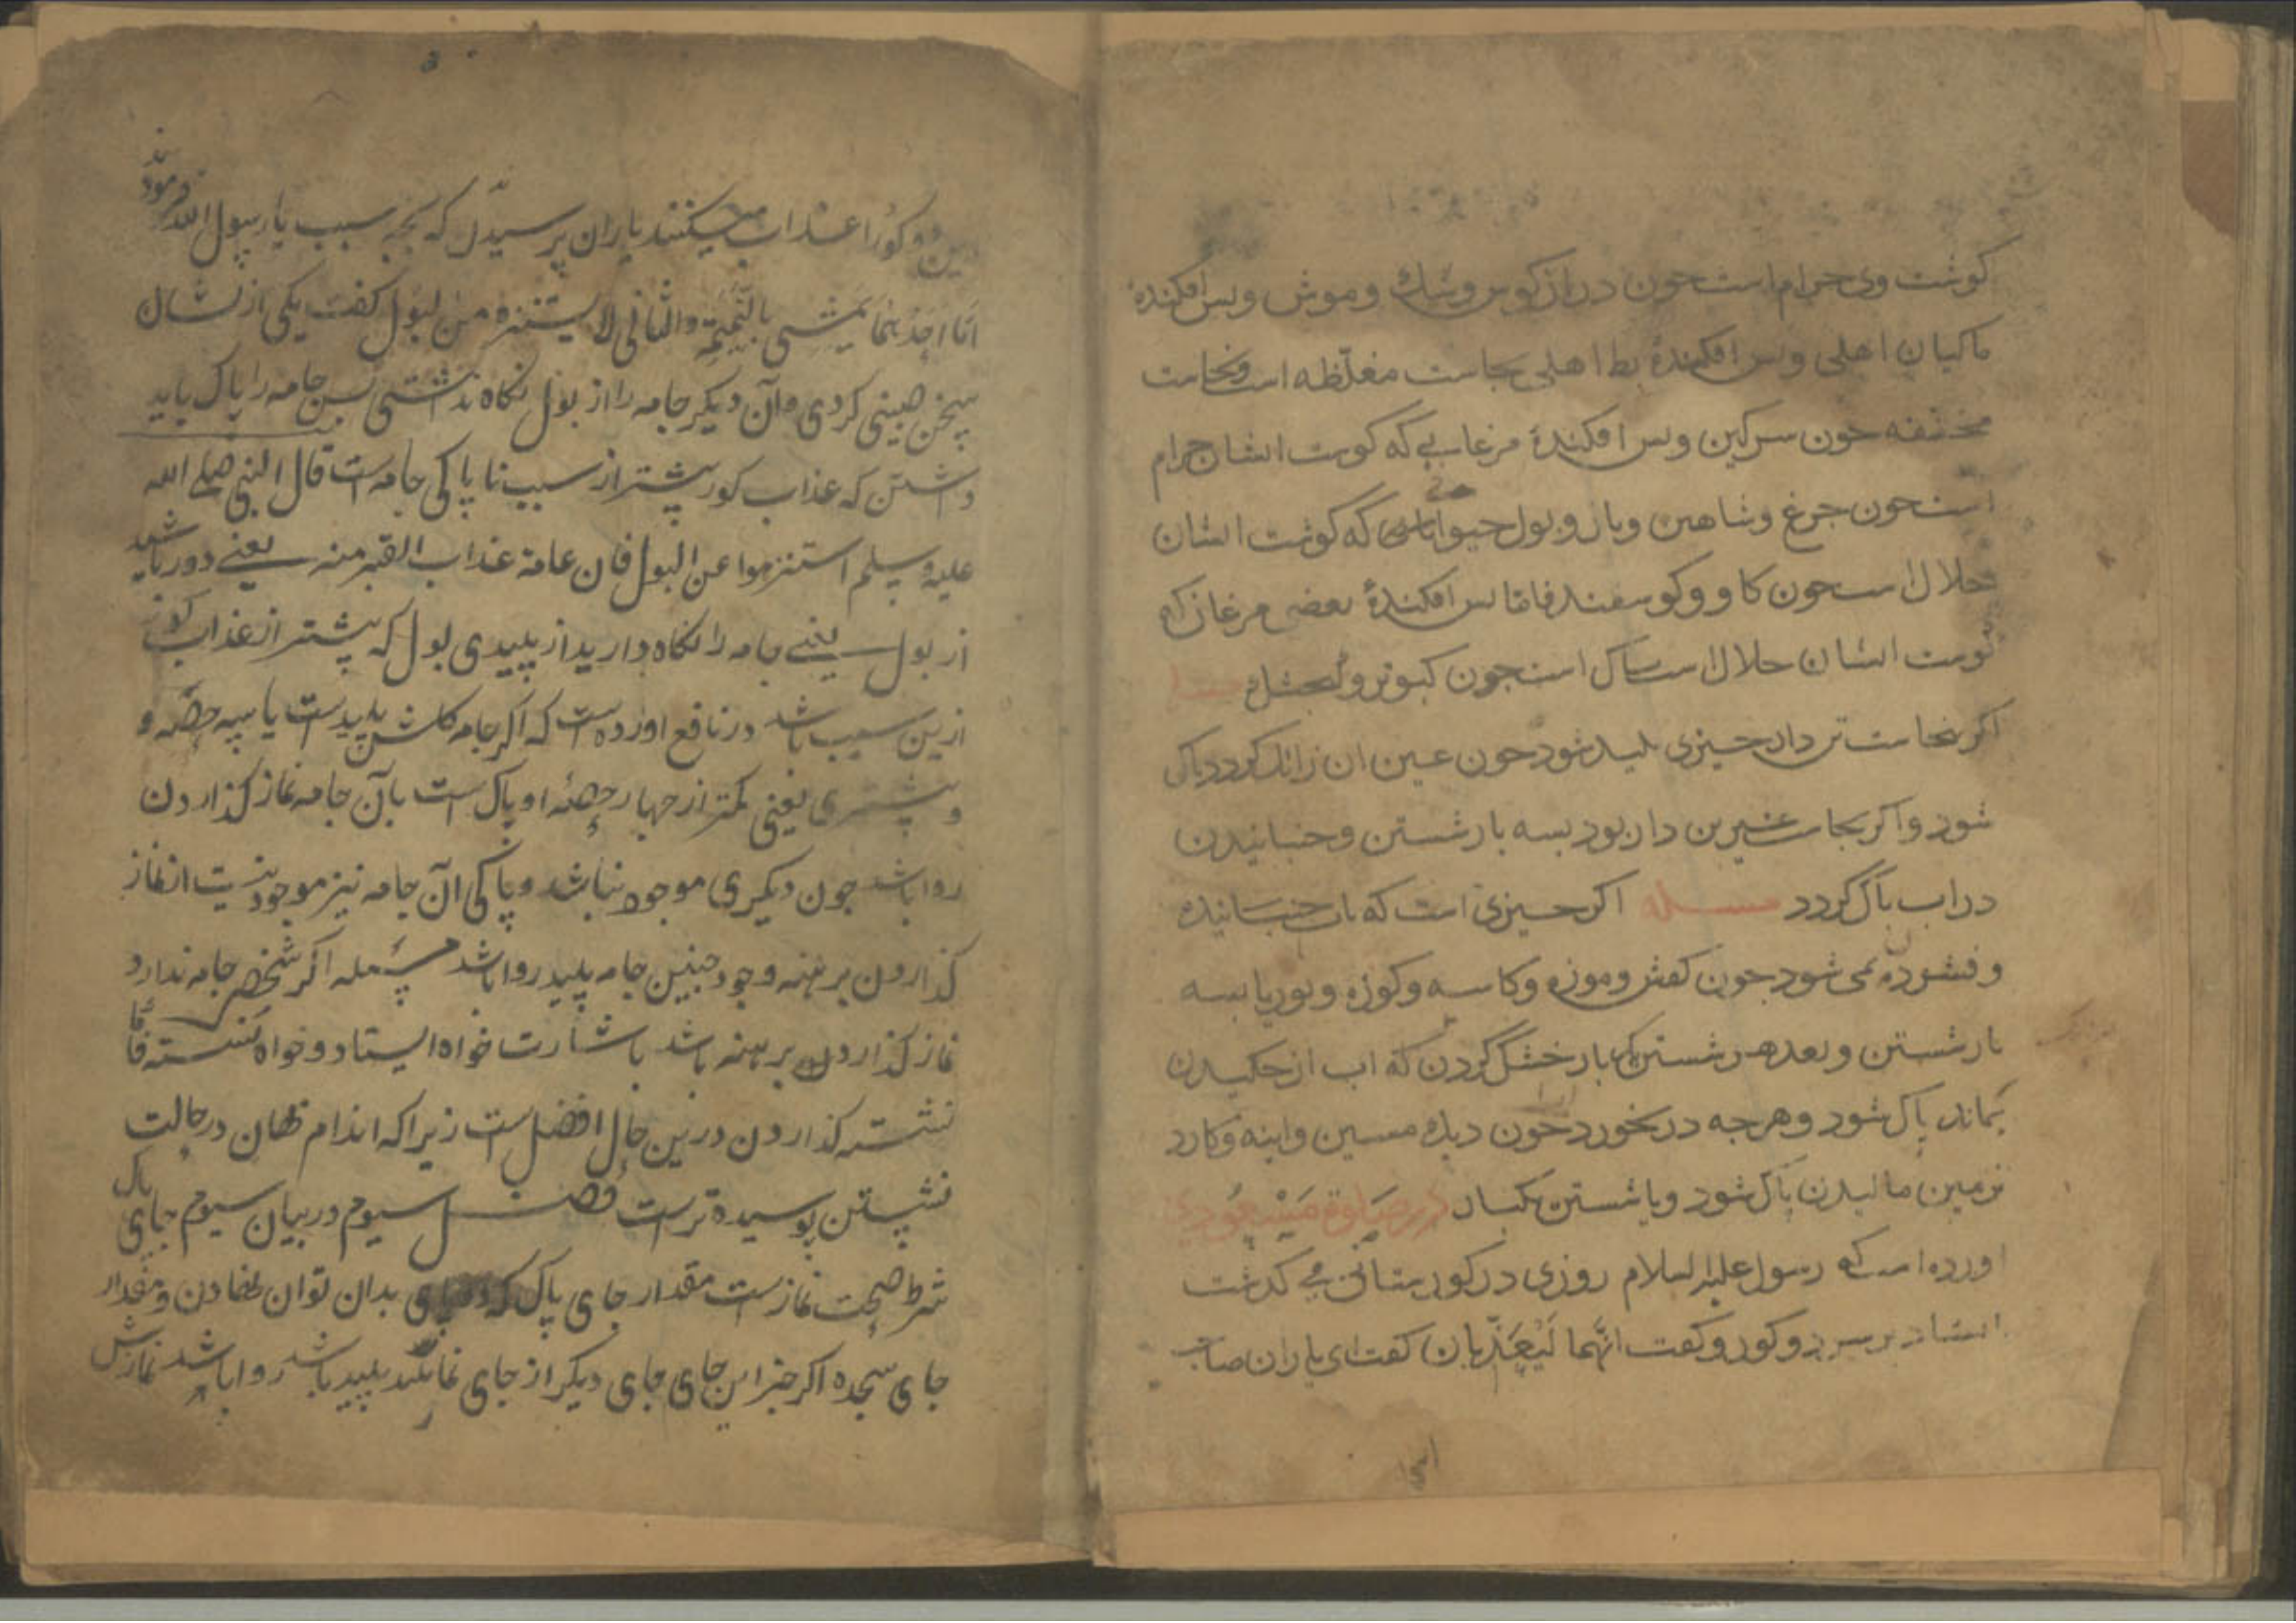 کوشت وی حرام است حون دراز کوس و سک و موش و بس افکندهٔ
ماکیان اهلی و بس افکندهٔ بط اهلی نجاست مغلّظه است و نجاست
مخففه حون سرکین و بس افکندهٔ مرغابی که کوشت ایشان حرام
است حون جرغ و شاهین و باز و بول حیواناتی که کوشت ایشان
حلال است حون کاو و کوسفند فامّا بس افکندهٔ بعضی مرغان که
کوشت ایشان حلال است باک است جون کبوتر و کنجشک
اکر نجاست تن دار حیزی بلید شود حون عین ان زائل کردد باک
شود و اکر نجاست غیر تن دار بود بسه بار شستن و جنبانیدن
در اب باک کردد مسله اکر حیزی است که باب جنبانیده
و فشورده نمی شود جون کفش و موزه و کاسه و کوزه و بوریا بسه
بار شستن و بعد هر شستن یکبار خشک کردن که اب از حکیدن
بماند باک شود و هرجه در نخورد حون دیک مسین و اینه و کارد
بزمین مالیدن باک شود و یا شستن یکبار در صلوة مسعودی
اورده است که رسول علیه السلام روزی در کورستانی می کذشت
استاد بر سر دو کور و کفت انّهما لَیُعَذّبان کفت ای یاران صاحب
این
این دو کور را عذاب میکنند یاران پرسیدند که بچه سبب یا رسول الله فرمود
امّا احدهما یمشی بالنمیمة والثانی لا یستنزه من البول کفت یکی از نشان
سخن چینی کردی و آن دیکر جامه را از بول نکاه نداشتی پس جامه را پاک باید
داشتن که عذاب کور پیشتر از سبب ناپاکی جامه است قال النبی صلی الله
علیه وسلم استنزهوا عن البول فان عامة عذاب القبر منه یعنی دور باشید
از بول یعنی جامه را نکاه دارید از پلیدی بول که پیشتر از عذاب کور
ازین سبب باشد در نافع اورده است که اکر جامه کلش پلیدست یا سه حصّه و
پیشتری یعنی کمتر از جهار حصهٔ او پاک است بآن جامه نماز کذاردن
روا باشد جون دیکری موجود نباشد و پاکی آن جامه نیز موجود نیست از نماز
کذاردن برهنه وجود جنین جامه پلید روا باشد مسئله اکر شخصی جامه ندارد
نماز کذاردن برهنه باشد باشارت خواه ایستاد و خواه نشسته فامّا
نشسته کذاردن درین حال افضل است زیرا که اندام نهان در حالت
نشستن پوسیده ترست فصل سیوم در بیان سیوم جای پاک
شرط صحت نماز ست مقدار جای پاک که بدان توان نهادن و مقدار
جای سجده اکر جز این جای جای دیکر از جای نماز پلید باشد روا باشد نمازش